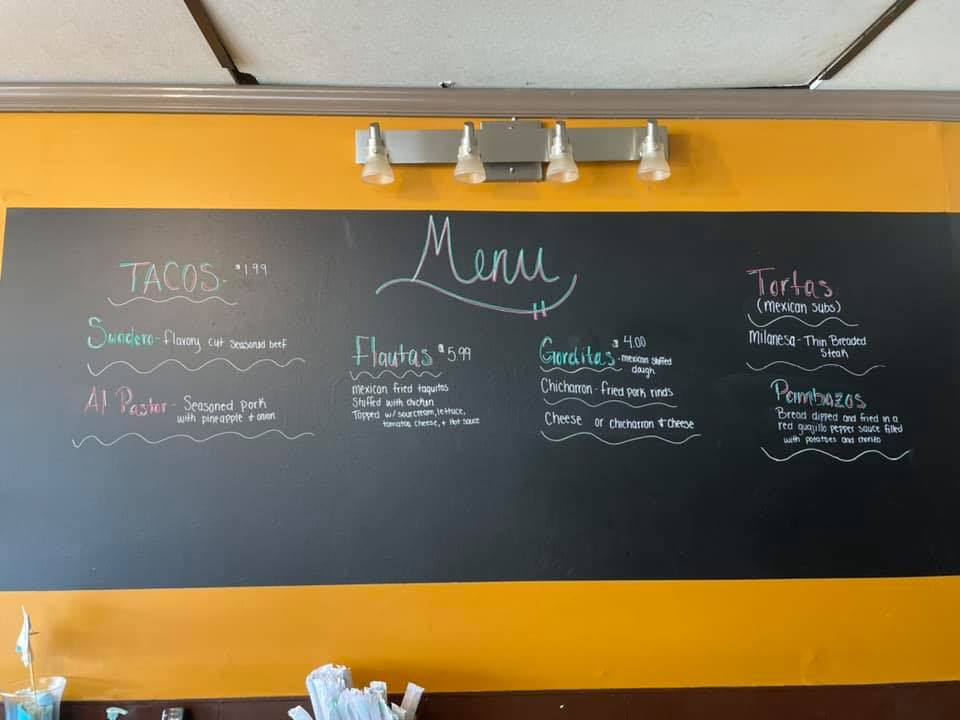 Menu
TACOS - $1.99
Suadero - flavory cut seasoned beef
Al Pastor - Seasoned pork
with pineapple + onion
Flautas $5.99
mexican fried taquitos
Stuffed with chicken
Topped w/ sourcream, lettuce,
tomatoes, cheese, + Hot sauce
Gorditas $4.00
- mexican stuffed
dough
Chicharron - fried pork rinds
Cheese or chicharron + cheese
Tortas
(mexican subs)
Milanesa - Thin Breaded
Steak
Pambazos
Bread dipped and fried in a
red guajillo pepper sauce filled
with potatoes and chorizo